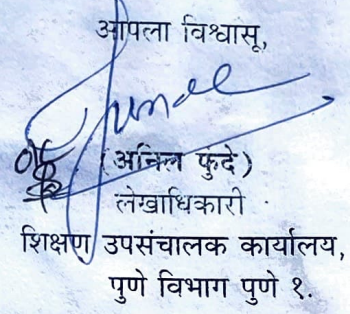 आपला विश्वासू,
(अनिल फुंदे)
लेखाधिकारी
शिक्षण उपसंचालक कार्यालय,
पुणे विभाग पुणे १.